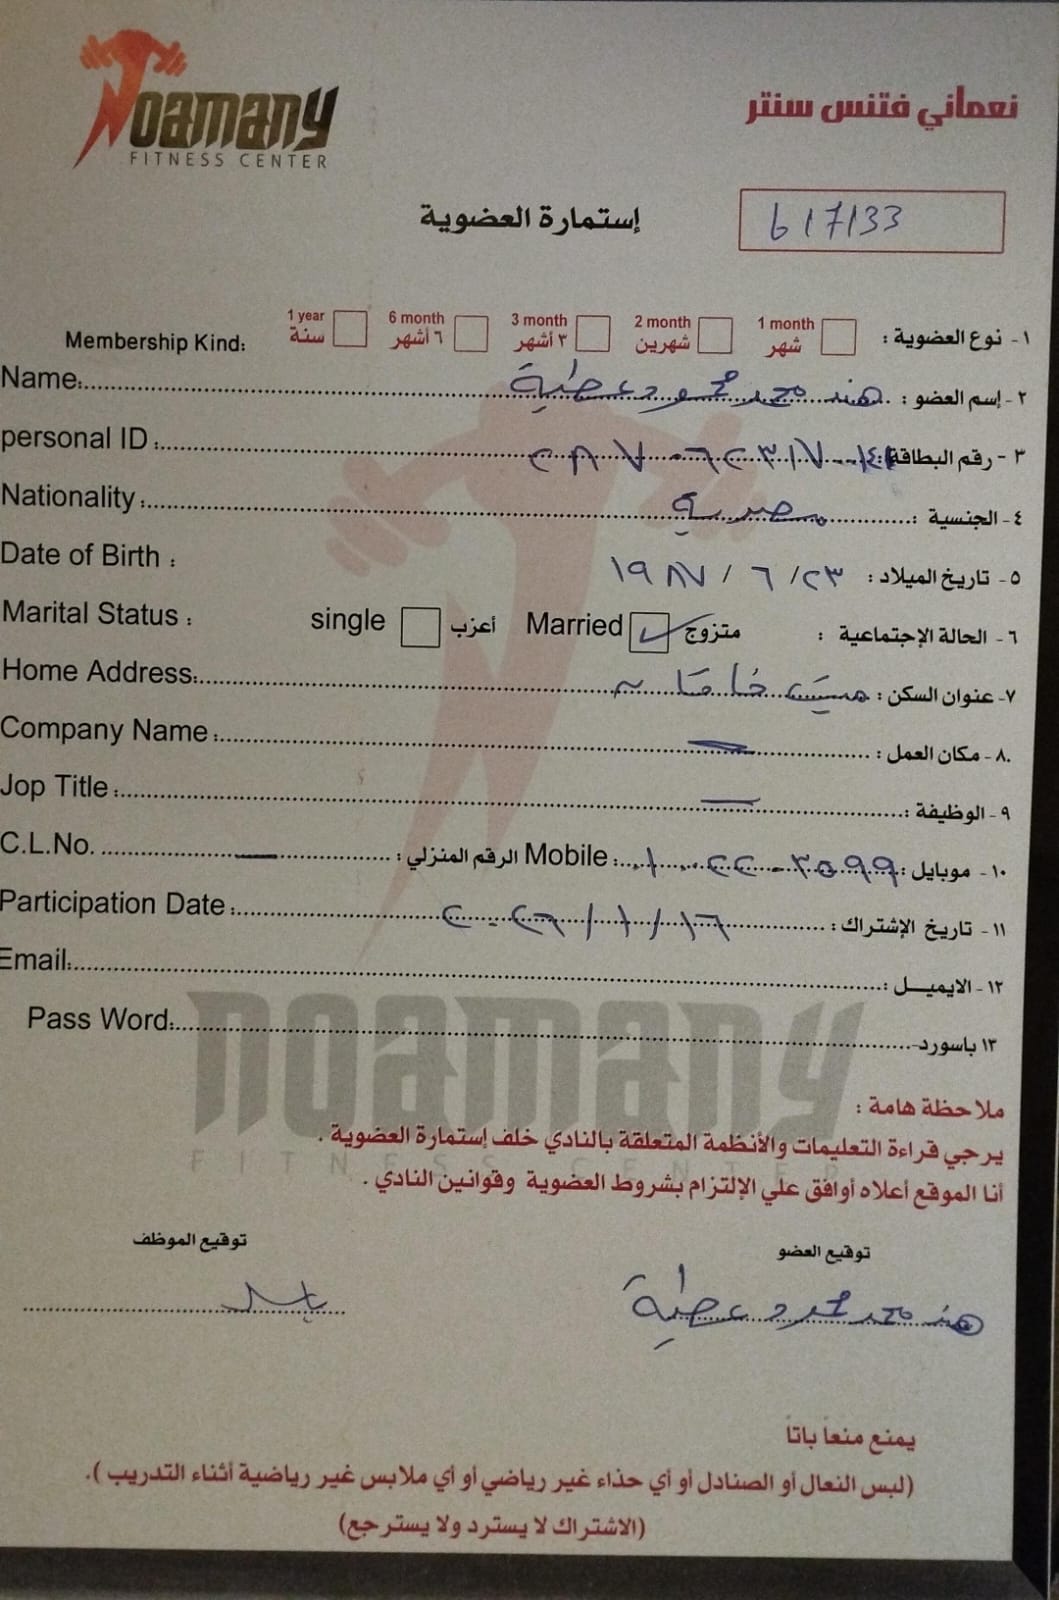 NOAMANY
FITNESS CENTER
نعماني فتنس سنتر
إستمارة العضوية
617133
١- نوع العضوية : 1 month شهر 2 month شهرين 3 month ٣ أشهر 6 month ٦ أشهر 1 year سنة Membership Kind:
٢- إسم العضو : هند محمد محمود عطية Name:
٣- رقم البطاقة: personal ID :
٤- الجنسية : مصرية Nationality :
٥- تاريخ الميلاد : ٢٣/ ٦ / ١٩٨٧ Date of Birth :
٦- الحالة الإجتماعية : متزوج Married أعزب single Marital Status :
٧- عنوان السكن : ميت خاقان Home Address:
٨- مكان العمل : Company Name :
٩- الوظيفة : Jop Title :
١٠- موبايل : ٠١٠٢٢٠٣٥٩٩ Mobile : الرقم المنزلي : C.L.No.
١١- تاريخ الإشتراك : ١٦/ ١ / ٢٠٢٦ Participation Date :
١٢- الايميل : Email:
١٣ باسورد- Pass Word:
NOAMANY
FITNESS CENTER
ملاحظة هامة :
يرجي قراءة التعليمات والأنظمة المتعلقة بالنادي خلف إستمارة العضوية .
أنا الموقع أعلاه أوافق علي الإلتزام بشروط العضوية وقوانين النادي .
توقيع العضو توقيع الموظف
هند محمد محمود عطية
يمنع منعاً باتاً
(لبس النعال أو الصنادل أو أي حذاء غير رياضي أو أي ملابس غير رياضية أثناء التدريب ).
(الاشتراك لا يسترد ولا يسترجع)